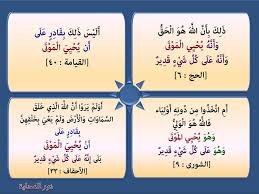 ذَلِكَ بِأَنَّ اللَّهَ هُوَ الْحَقُّ
وَأَنَّهُ يُحْيِي الْمَوْتَى
وَأَنَّهُ عَلَى كُلِّ شَيْءٍ قَدِيرٌ
[الحج : ٦]
أَلَيْسَ ذَلِكَ بِقَادِرٍ عَلَى
أَنْ يُحْيِيَ الْمَوْتَى
[القيامة : ٤٠]
أَمِ اتَّخَذُوا مِنْ دُونِهِ أَوْلِيَاءَ
فَاللَّهُ هُوَ الْوَلِيُّ
وَهُوَ يُحْيِي الْمَوْتَى
وَهُوَ عَلَى كُلِّ شَيْءٍ قَدِيرٌ
[الشورى : ٩]
أَوَلَمْ يَرَوْا أَنَّ اللَّهَ الَّذِي خَلَقَ
السَّمَاوَاتِ وَالْأَرْضَ وَلَمْ يَعْيَ بِخَلْقِهِنَّ
بِقَادِرٍ عَلَى
أَنْ يُحْيِيَ الْمَوْتَى
بَلَى إِنَّهُ عَلَى كُلِّ شَيْءٍ قَدِيرٌ
[الأحقاف : ٣٣]